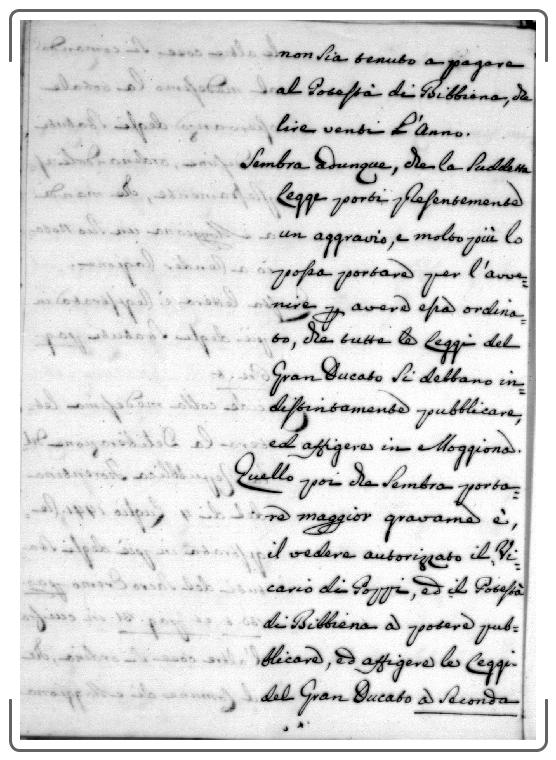 non sia tenuto a pagare
al Potestà di Bibbiena, che
lire venti L'Anno.
Sembra adunque, che la suddetta
Legge porti presentemente
un aggravio, e molto più lo
possa portare per l'avve=
nire p avere essa ordina=
to, che tutte le Leggi del
Gran Ducato si debbano in=
distintamente pubblicare,
ed affigere in Moggiona.
Quello poi che sembra porta=
re maggior gravame è,
il vedere autorizzato il Vi=
cario di Poppi, ed il Potestà
di Bibbiena à potere pub=
blicare, ed affigere le Leggi
del Gran Ducato à Seconda